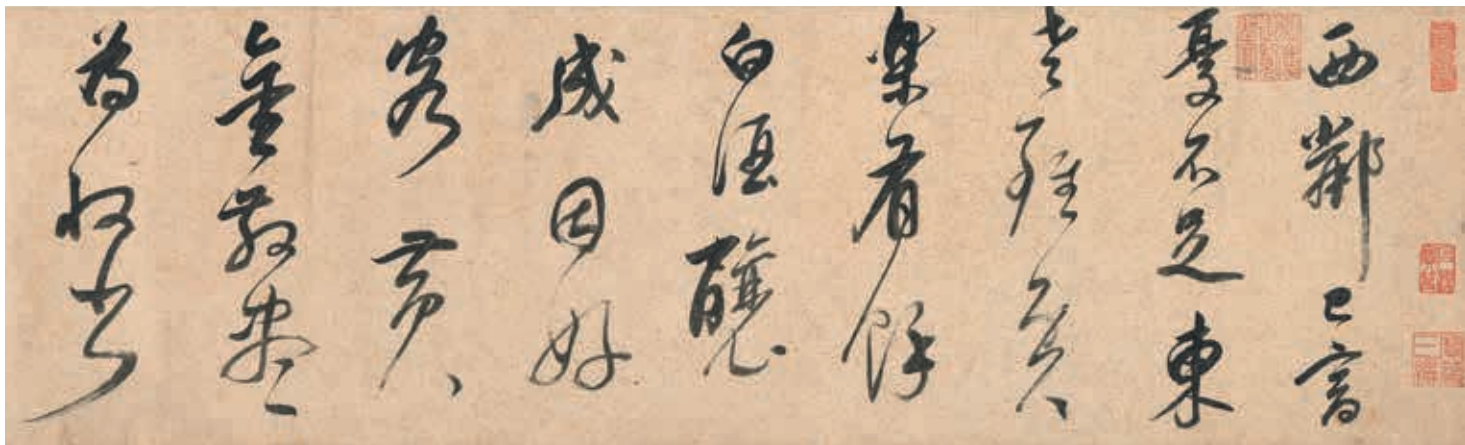 西鄰已富
憂不足東
老雖貧
樂有餘
白酒釀
成因好
客黃
金散盡
為收書